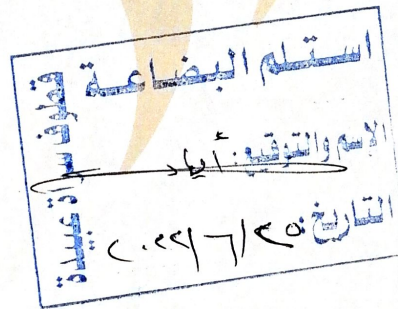 استلم البضاعة
الإسم والتوقيع: أياد
التاريخ: ٢٠٢٢/٦/٢٥